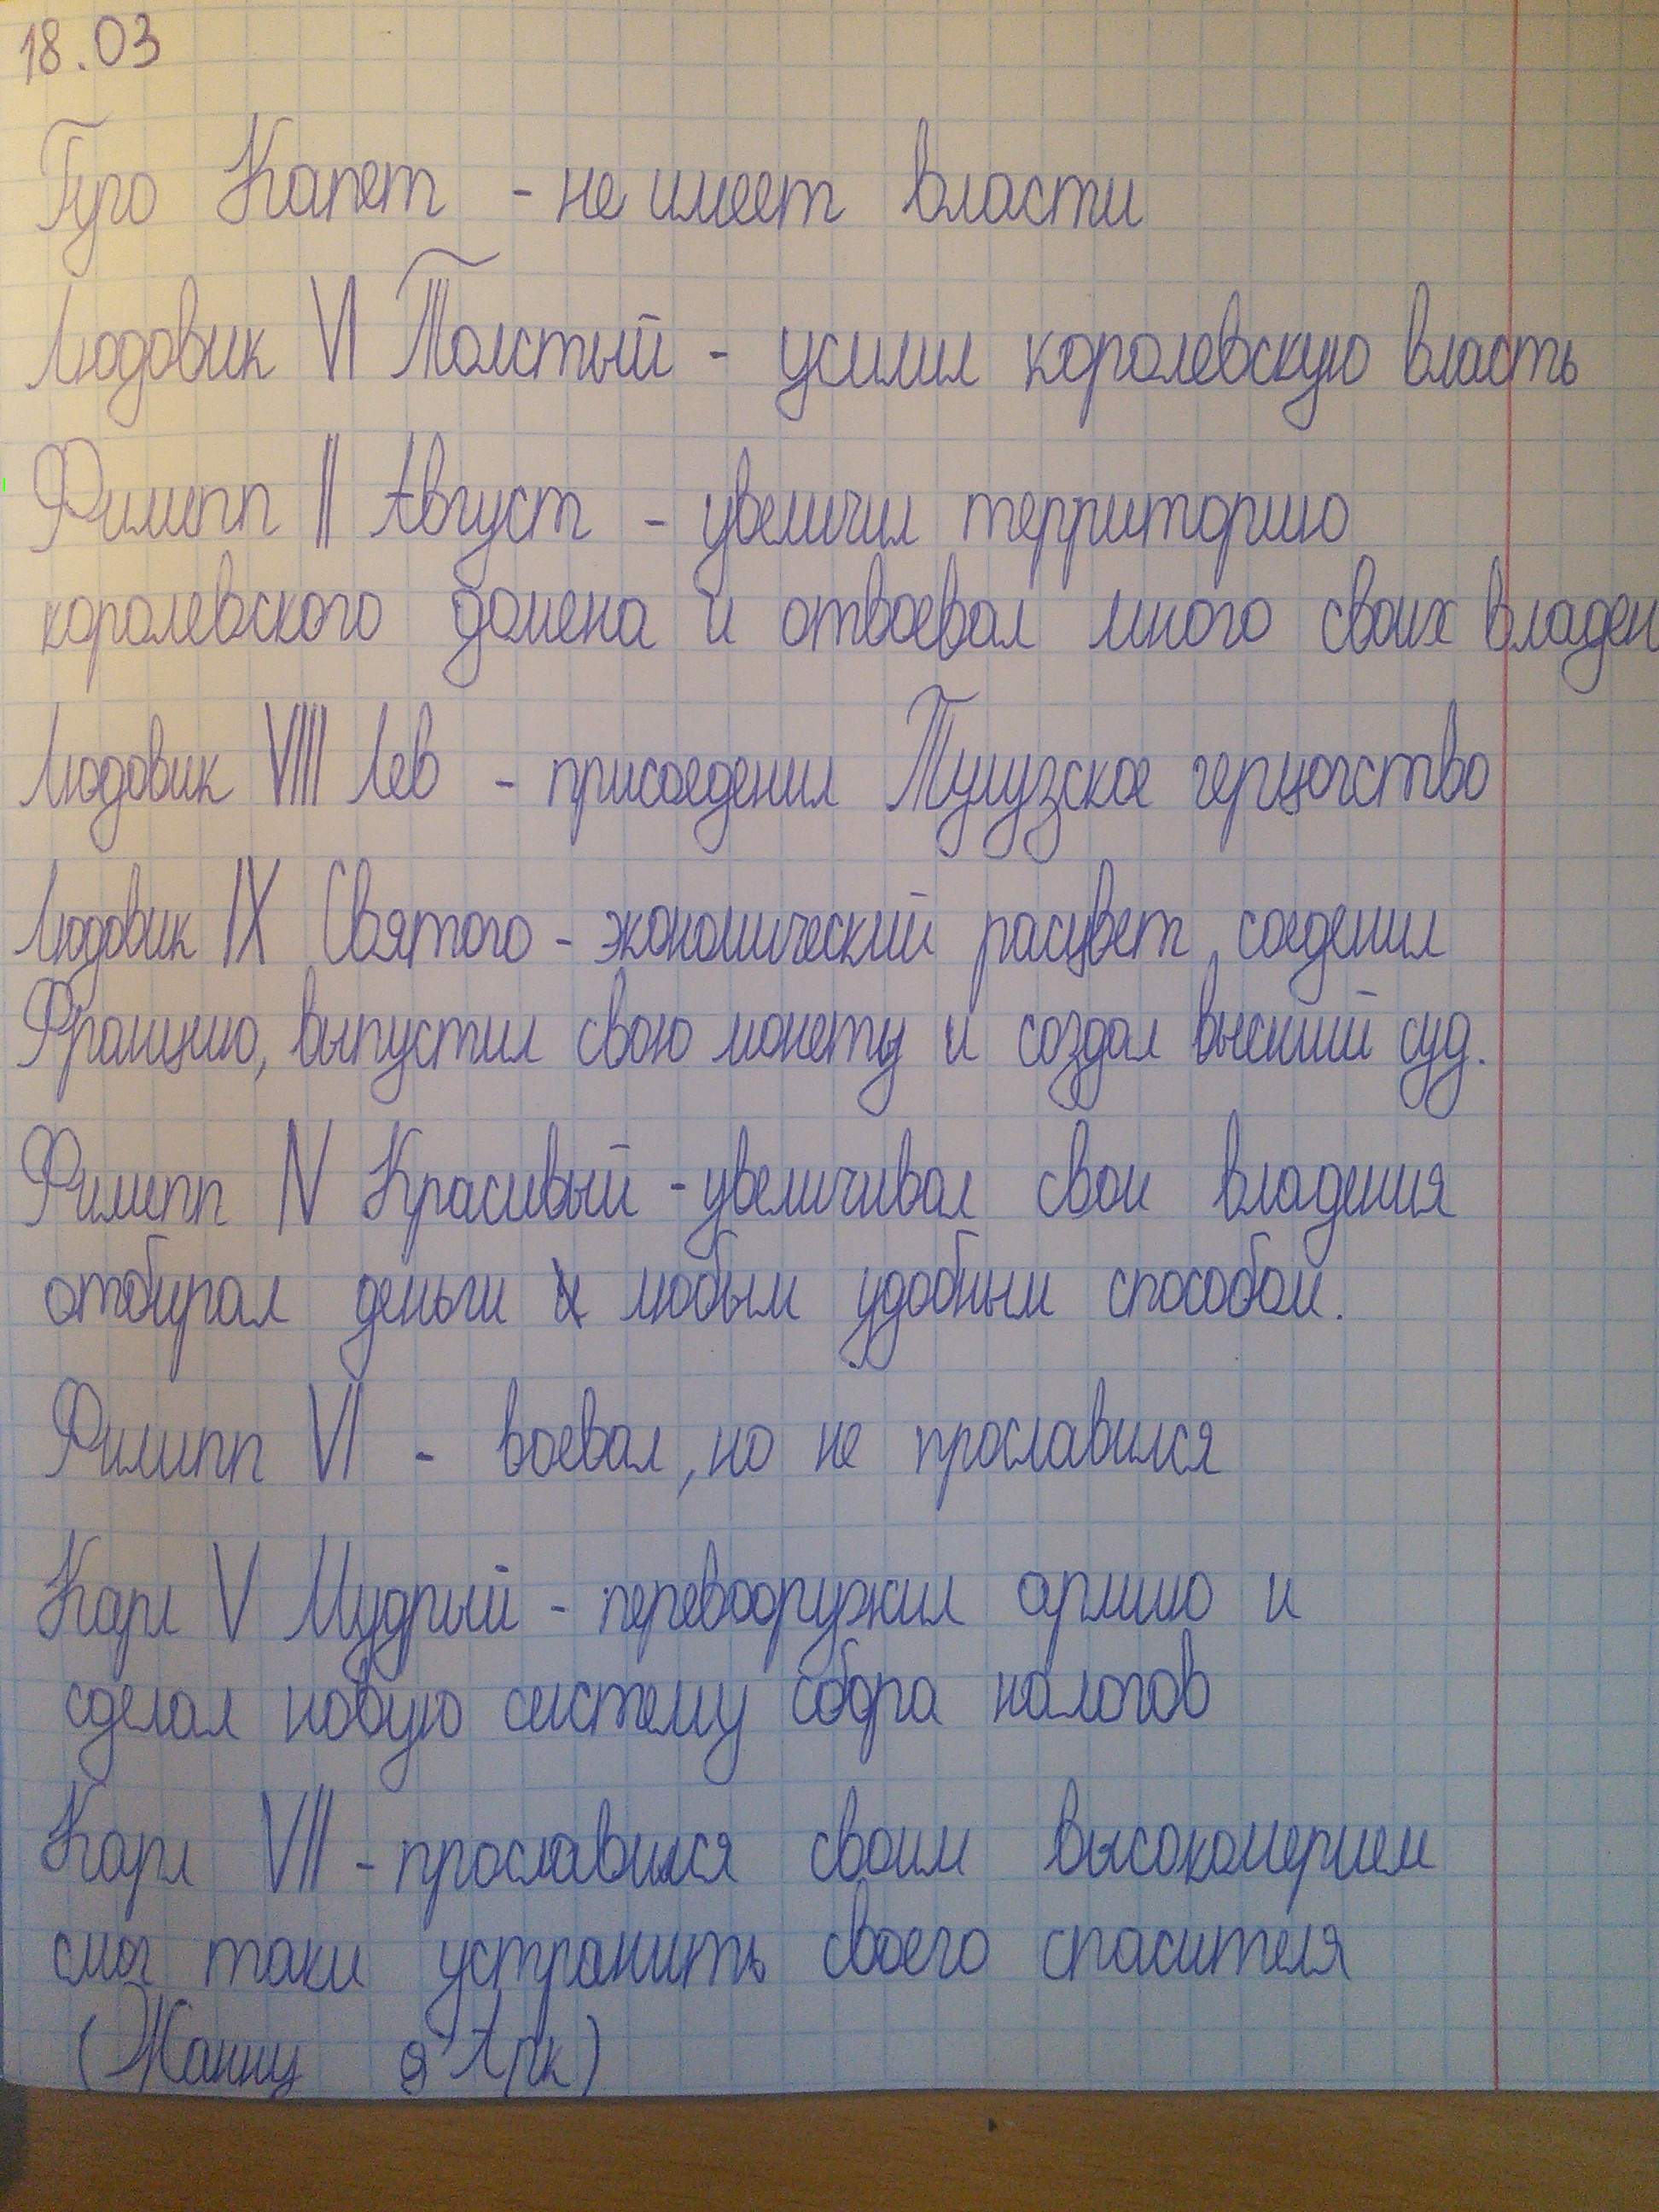 18.03
Гуго Капет - не имеет власти
Людовик VI Толстый - усилил королевскую власть
Филипп II Август - увеличил территорию
королевского домена и отвоевал много своих владен
Людовик VIII Лев - присоеденил Тулузское герцогство
Людовик IX Святого - экономический расцвет, соеденил
Францию, выпустил свою монету и создал высший суд.
Филипп IV Красивый - увеличивал свои владения
отбирал деньги любым удобным способом.
Филипп VI - воевал, но не прославился
Карл V Мудрый - перевооружил армию и
сделал новую систему сбора налогов
Карл VII - прославился своим высокомерием
смог таки устранить своего спасителя
(Жанну д'Арк)